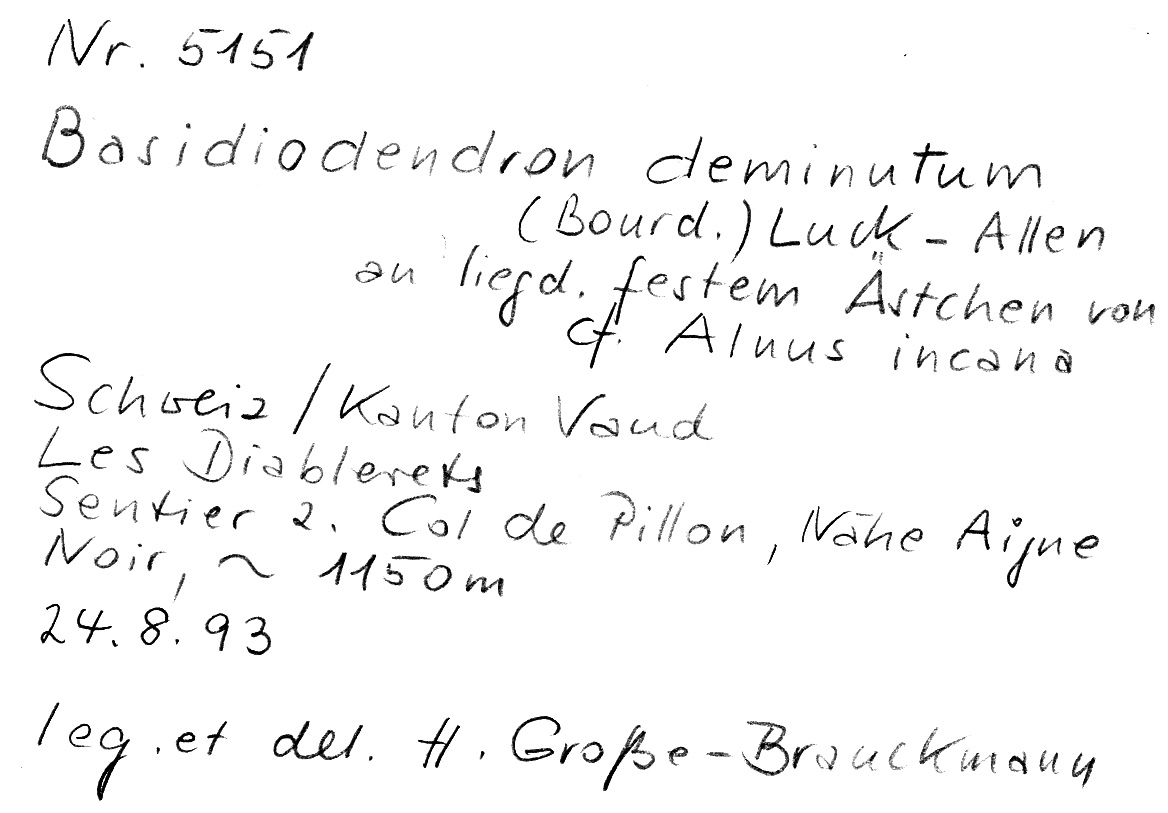 Nr. 5151
Basidiodendron deminutum
(Bourd.) Luck-Allen
an liegd. festem Ästchen von
cf. Alnus incana
Schweiz/Kanton Vaud
Les Diablerets
Sentier z. Col de Pillon, Nähe Aigue
Noir, ~ 1150m
24.8.93
leg. et det. H. Große-Brauckmann